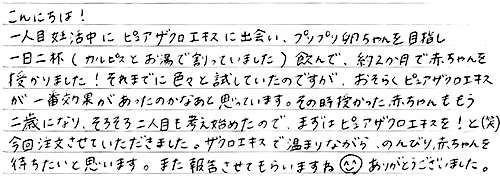 こんにちは！
一人目妊活中に ピュアザクロエキスに出会い、プリプリ卵ちゃんを目指し
一日二杯（カルピスとお湯で割っていました）飲んで、約2か月で赤ちゃんを
授かりました！それまでに色々と試していたのですが、おそらくピュアザクロエキス
が一番効果があったのかなあと思っています。その時授かった赤ちゃんももう
二歳になり、そろそろ二人目も考え始めたので、まずはピュアザクロエキスを！と(笑)
今回注文させていただきました。ザクロエキスで温まりながら、のんびり赤ちゃんを
待ちたいと思います。また報告させてもらいますね ありがとうございました。